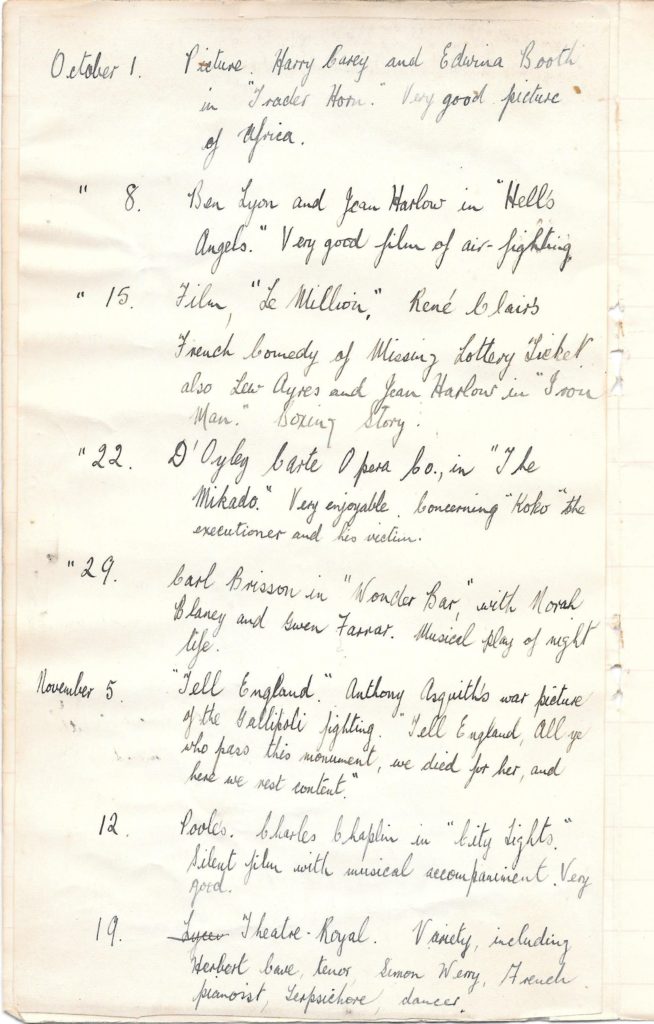 October 1. Picture. Harry Carey and Edwina Booth
in "Trader Horn." Very good picture
of Africa.
" 8. Ben Lyon and Jean Harlow in "Hell's
Angels." Very good film of air-fighting.
" 15. Film, "Le Million," René Clair's
French Comedy of Missing Lottery Ticket
also Lew Ayres and Jean Harlow in "Iron
Man." Boxing Story.
" 22. D'Oyley Carte Opera Co., in "The
Mikado." Very enjoyable. Concerning "Koko" the
executioner and his victim.
" 29. Carl Brisson in "Wonder Bar," with Norah
Blaney and Gwen Farrar. Musical play of night
life.
November 5. "Tell England." Anthony Asquith's war picture
of the Gallipoli fighting. "Tell England, All ye
who pass this monument, we died for her, and
here we rest content."
12. Pooles. Charles Chaplin in "City Lights."
Silent film with musical accompaniment. Very
good.
19. Lyceu Theatre-Royal. Variety, including
Herbert Cave, tenor, Simon Werry, French
pianoist, Terpsichore, dancer.